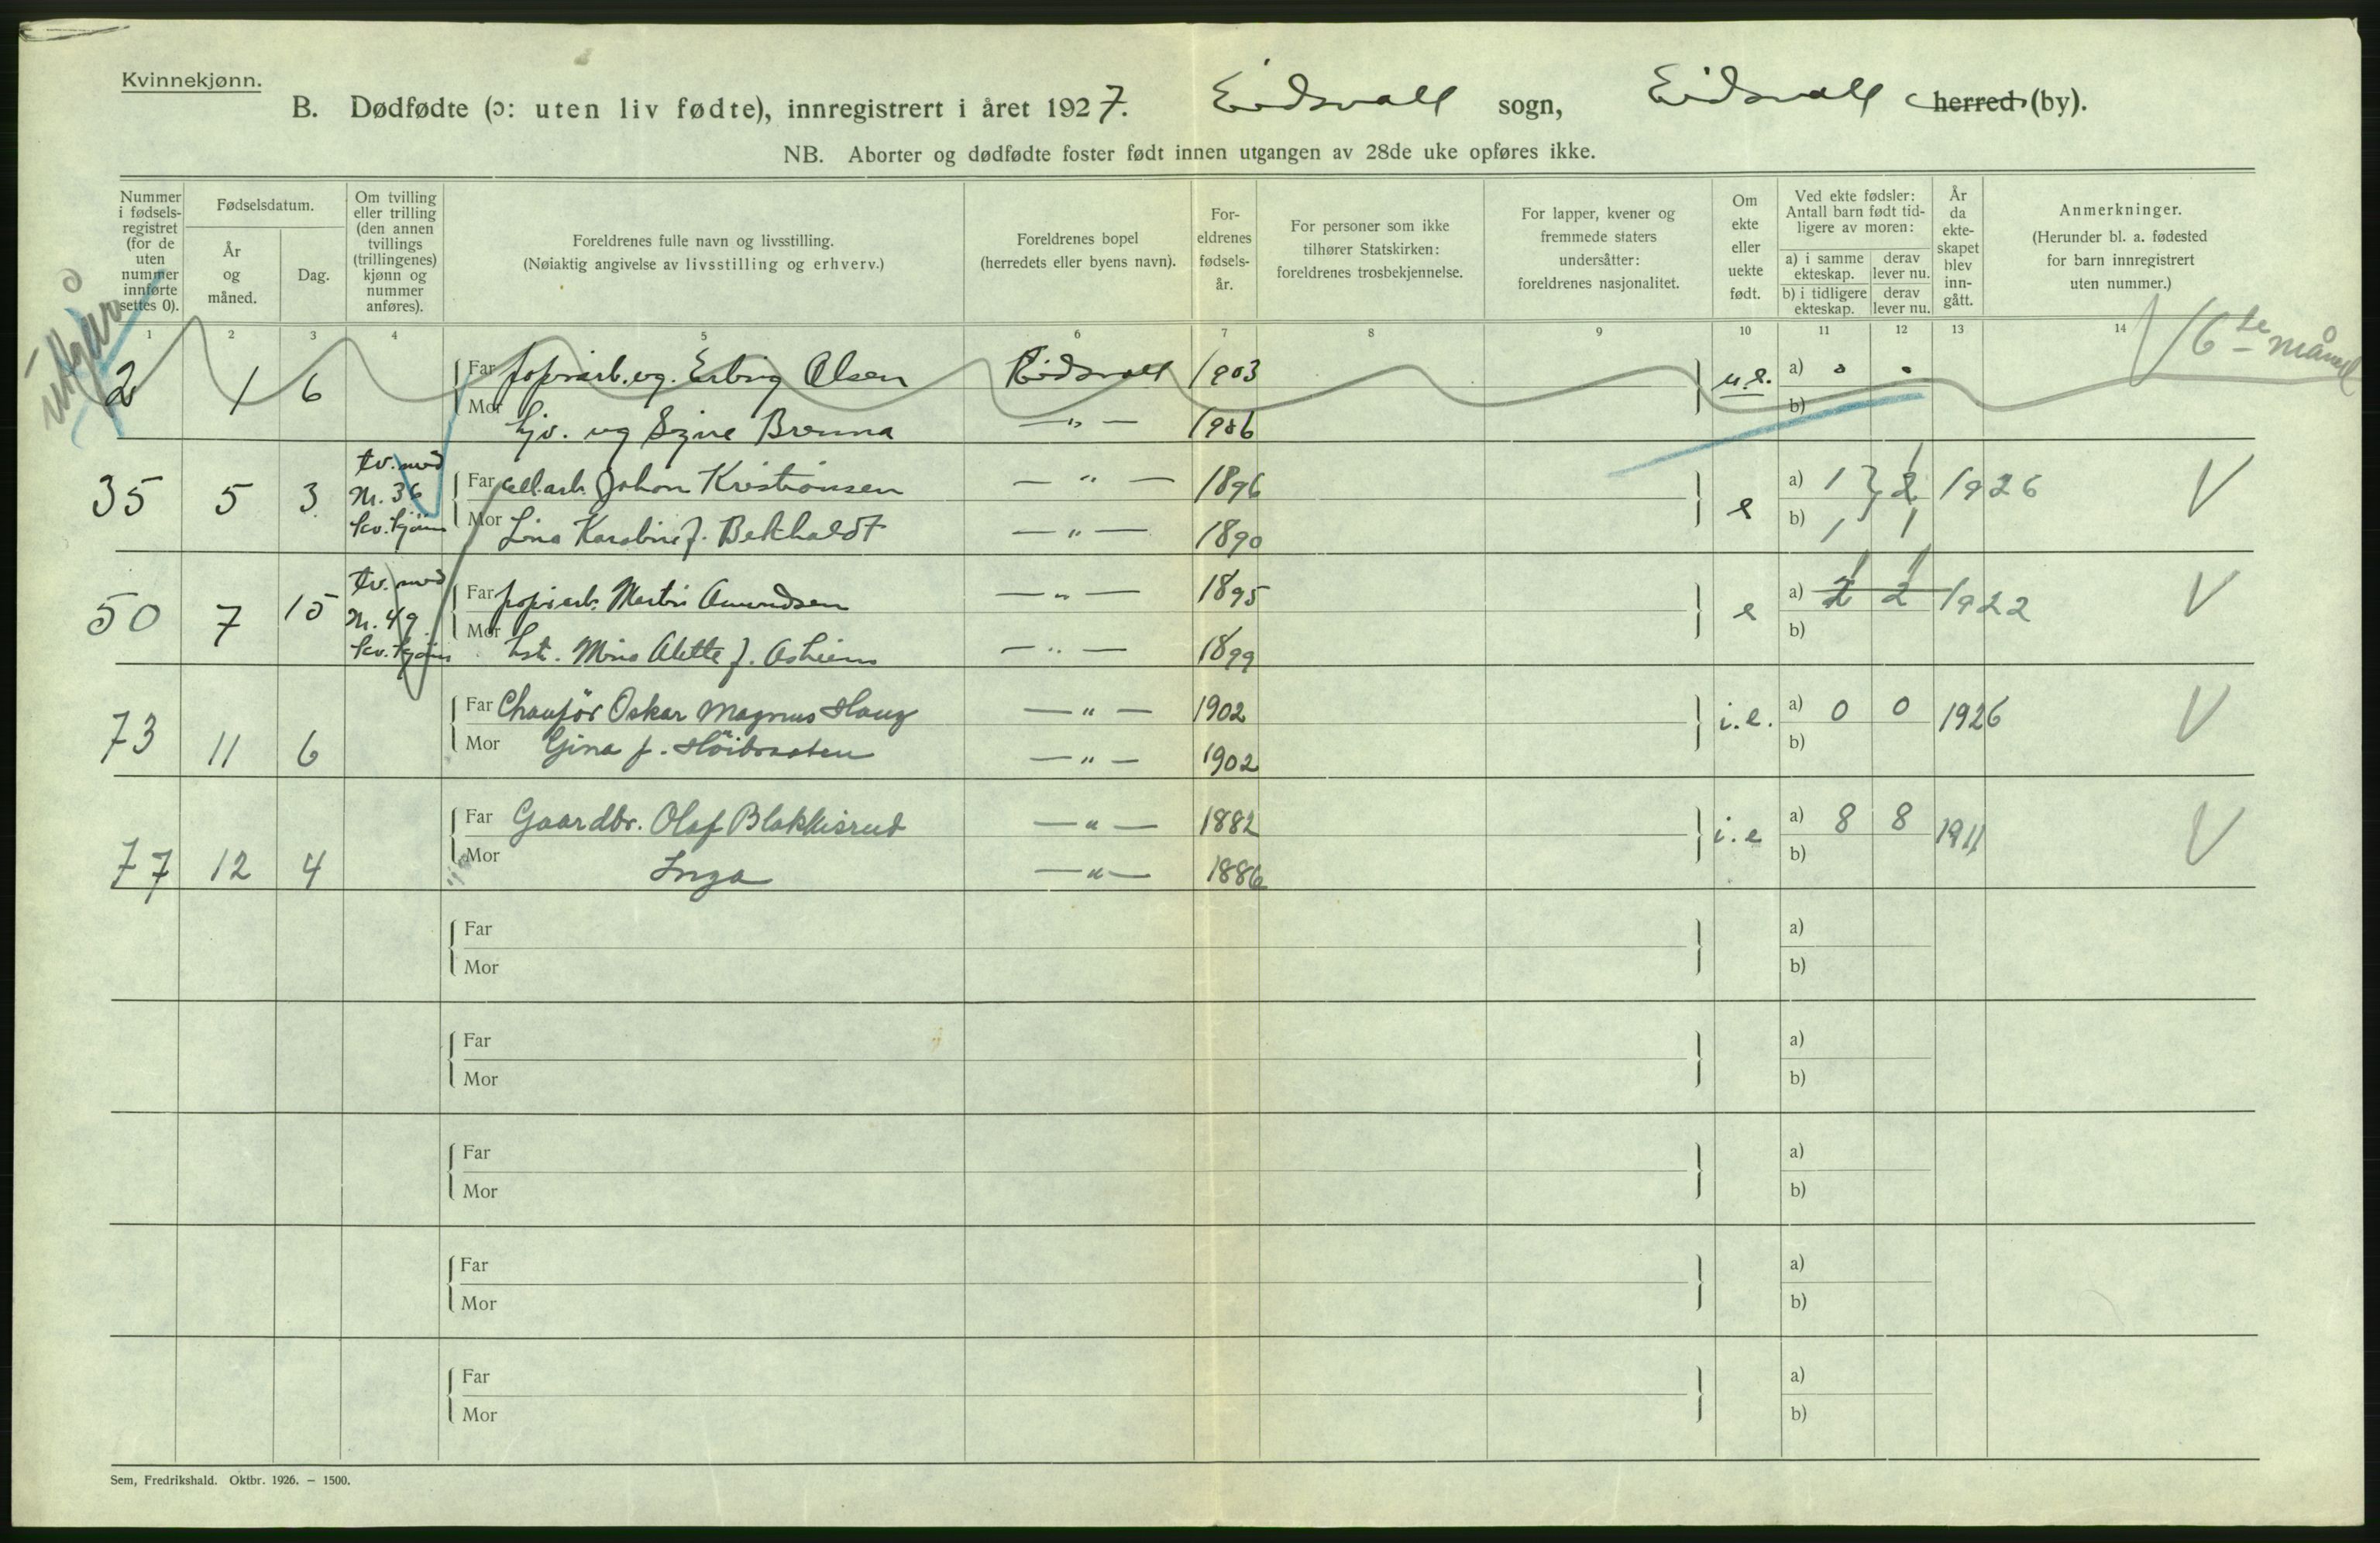 Kvinnekjønn.
B. Dødfødte (ɔ: uten liv fødte), innregistrert i året 1927. Eidsvoll sogn, Eidsvoll herred (by).
NB. Aborter og dødfødte foster født innen utgangen av 28de uke opføres ikke.
Nummer i fødsels-registret (for de uten nummer innførte settes 0).
Fødselsdatum.
År og måned.
Dag.
Om tvilling eller trilling (den annen tvillings (trillingenes) kjønn og nummer anføres).
Foreldrenes fulle navn og livsstilling.
(Nøiaktig angivelse av livsstilling og erhverv.)
Foreldrenes bopel
(herredets eller byens navn).
For-eldrenes fødsels-år.
For personer som ikke tilhører Statskirken: foreldrenes trosbekjennelse.
For lapper, kvener og fremmede staters undersåtter: foreldrenes nasjonalitet.
Om ekte eller uekte født.
Ved ekte fødsler: Antall barn født tid-ligere av moren:
a) i samme ekteskap. derav lever nu.
b) i tidligere ekteskap. derav lever nu.
År da ekte-skapet blev inn-gått.
Anmerkninger.
(Herunder bl. a. fødested for barn innregistrert uten nummer.)
1 2 3 4 5 6 7 8 9 10 11 12 13 14
utgår
2 1 6 Far papirarb. ug. Erling Olsen Eidsvoll 1903 u.e. a) 0 0 6te måned
Mor tj. ug Signe Brenna — " — 1906 b)
35 5 3 tv. med Nr. 36 kv. kjönn Far cell.arb. Johan Kristiansen — " — 1896 e a) 1 2 1926 V
Mor Lina Karoline f. Bekholdt — " — 1890 b) 1 1
50 7 15 tv. med Nr. 49 kv. kjönn Far papirarb. Martin Amundsen — " — 1895 e a) 2 2 1922 V
Mor hst. Mina Alette f. — " — 1899 b)
73 11 6 Far Chauför Oskar Magnus Haug — " — 1902 i.e. a) 0 0 1926 V
Mor Gina f. Höibraaten — " — 1902 b)
77 12 4 Far Gaardbr. Olaf Blakkisrud — " — 1882 i.e a) 8 8 1911 V
Mor Inga — " — 1886 b)
Far a)
Mor b)
Far a)
Mor b)
Far a)
Mor b)
Far a)
Mor b)
Far a)
Mor b)
Sem, Fredrikshald. Oktbr. 1926. — 1500.